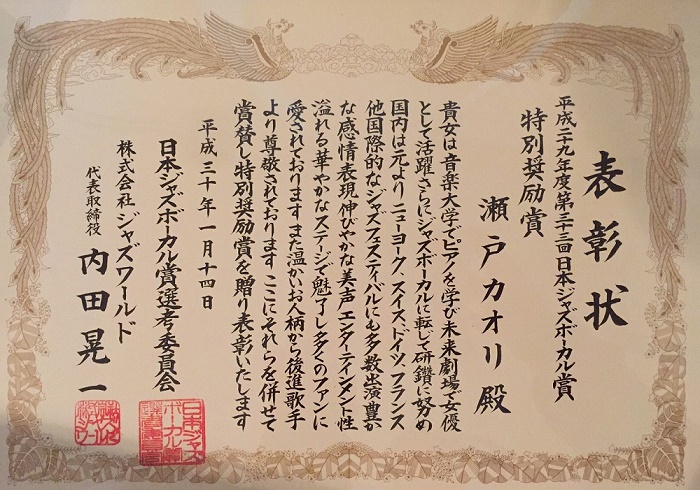 表彰状
平成二九年度第三十三回日本ジャズボーカル賞
特別奨励賞
瀬戸カオリ殿
貴女は音楽大学でピアノを学び未来劇場で女優
として活躍さらにジャズボーカルに転じ研鑽に努め
国内は元よりニューヨーク、スイス、ドイツ、フランス
他国際的なジャズフェスティバルにも多数出演豊か
な感情表現伸びやかな美声エンターティンメント性
溢れる華やかなステージで魅了し多くのファンに
愛されております また温かいお人柄から後進歌手
より尊敬されております ここにそれらを併せて
賞賛し特別奨励賞を贈り表彰いたします
平成三十年一月十四日
日本ジャズボーカル賞選考委員会
株式会社ジャズワールド
代表取締役 内田晃一
日本ジャズ
ボーカル賞